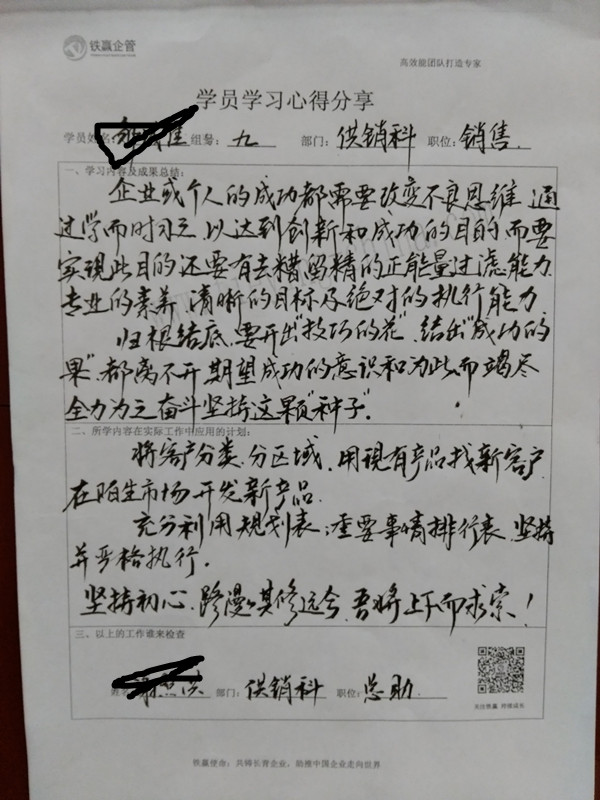 铁赢企管
高效能团队打造专家
学员学习心得分享
学员姓名: 组号: 九 部门: 供销科 职位: 销售.
一、学习内容及成果总结:
企业或个人的成功都需要改变不良思维、通
过学而时习之、以达到创新和成功的目的.而要
实现此目的还要有去糟留精的正能量过滤能力、
专业的素养、清晰的目标及绝对的执行能力
归根结底、要开出"技巧的花"、结出"成功的
果"、都离不开期望成功的意识和为此而竭尽
全力为之奋斗坚持这颗"种子".
二、所学内容在实际工作中应用的计划:
将客户分类、分区域、用现有产品找新客户、
在陌生市场开发新产品.
充分利用规划表;重要事情排行表、坚持
并严格执行.
坚持初心、路漫漫其修远兮、吾将上下而求索!
三、以上的工作谁来检查
姓名: 部门: 供销科 职位: 总助.
关注铁赢 持续成长
铁赢使命: 共铸长青企业, 助推中国企业走向世界